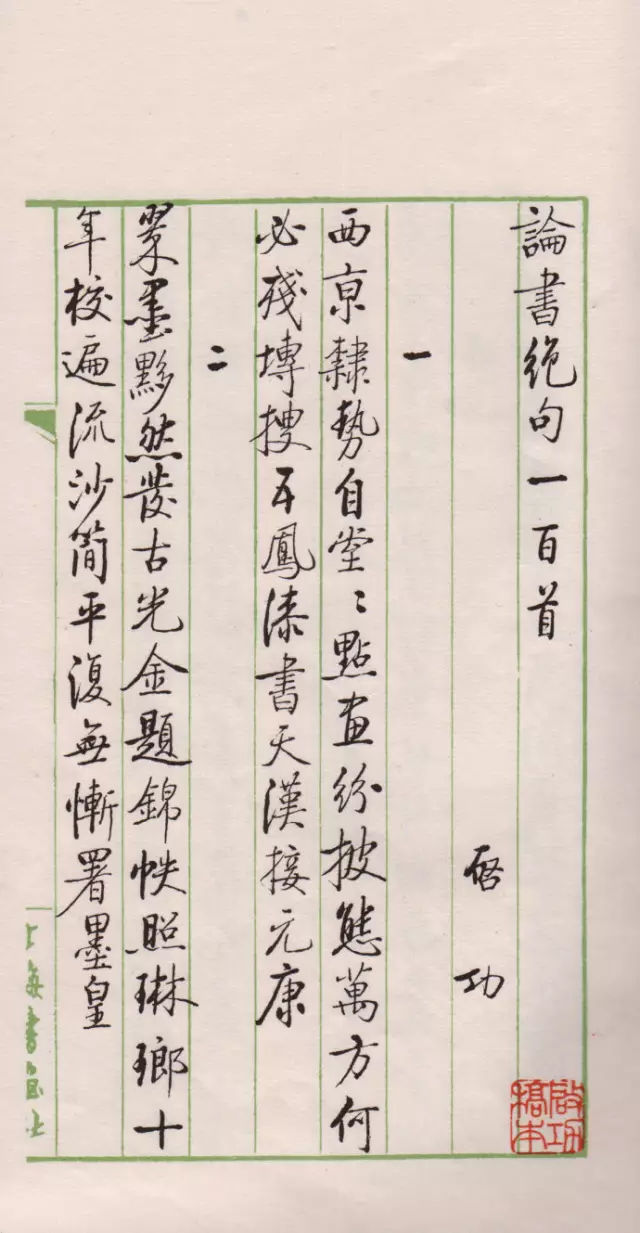 論書絕句一百首
啓功
啟功
一
西京隸勢自堂〻點畫紛披態萬方何
必殘塼搜五鳳漆書天漢接元康
二
翠墨黟然發古光金題錦帙照琳瑯十
年校遍流沙簡平復無慚署墨皇
上海書画社